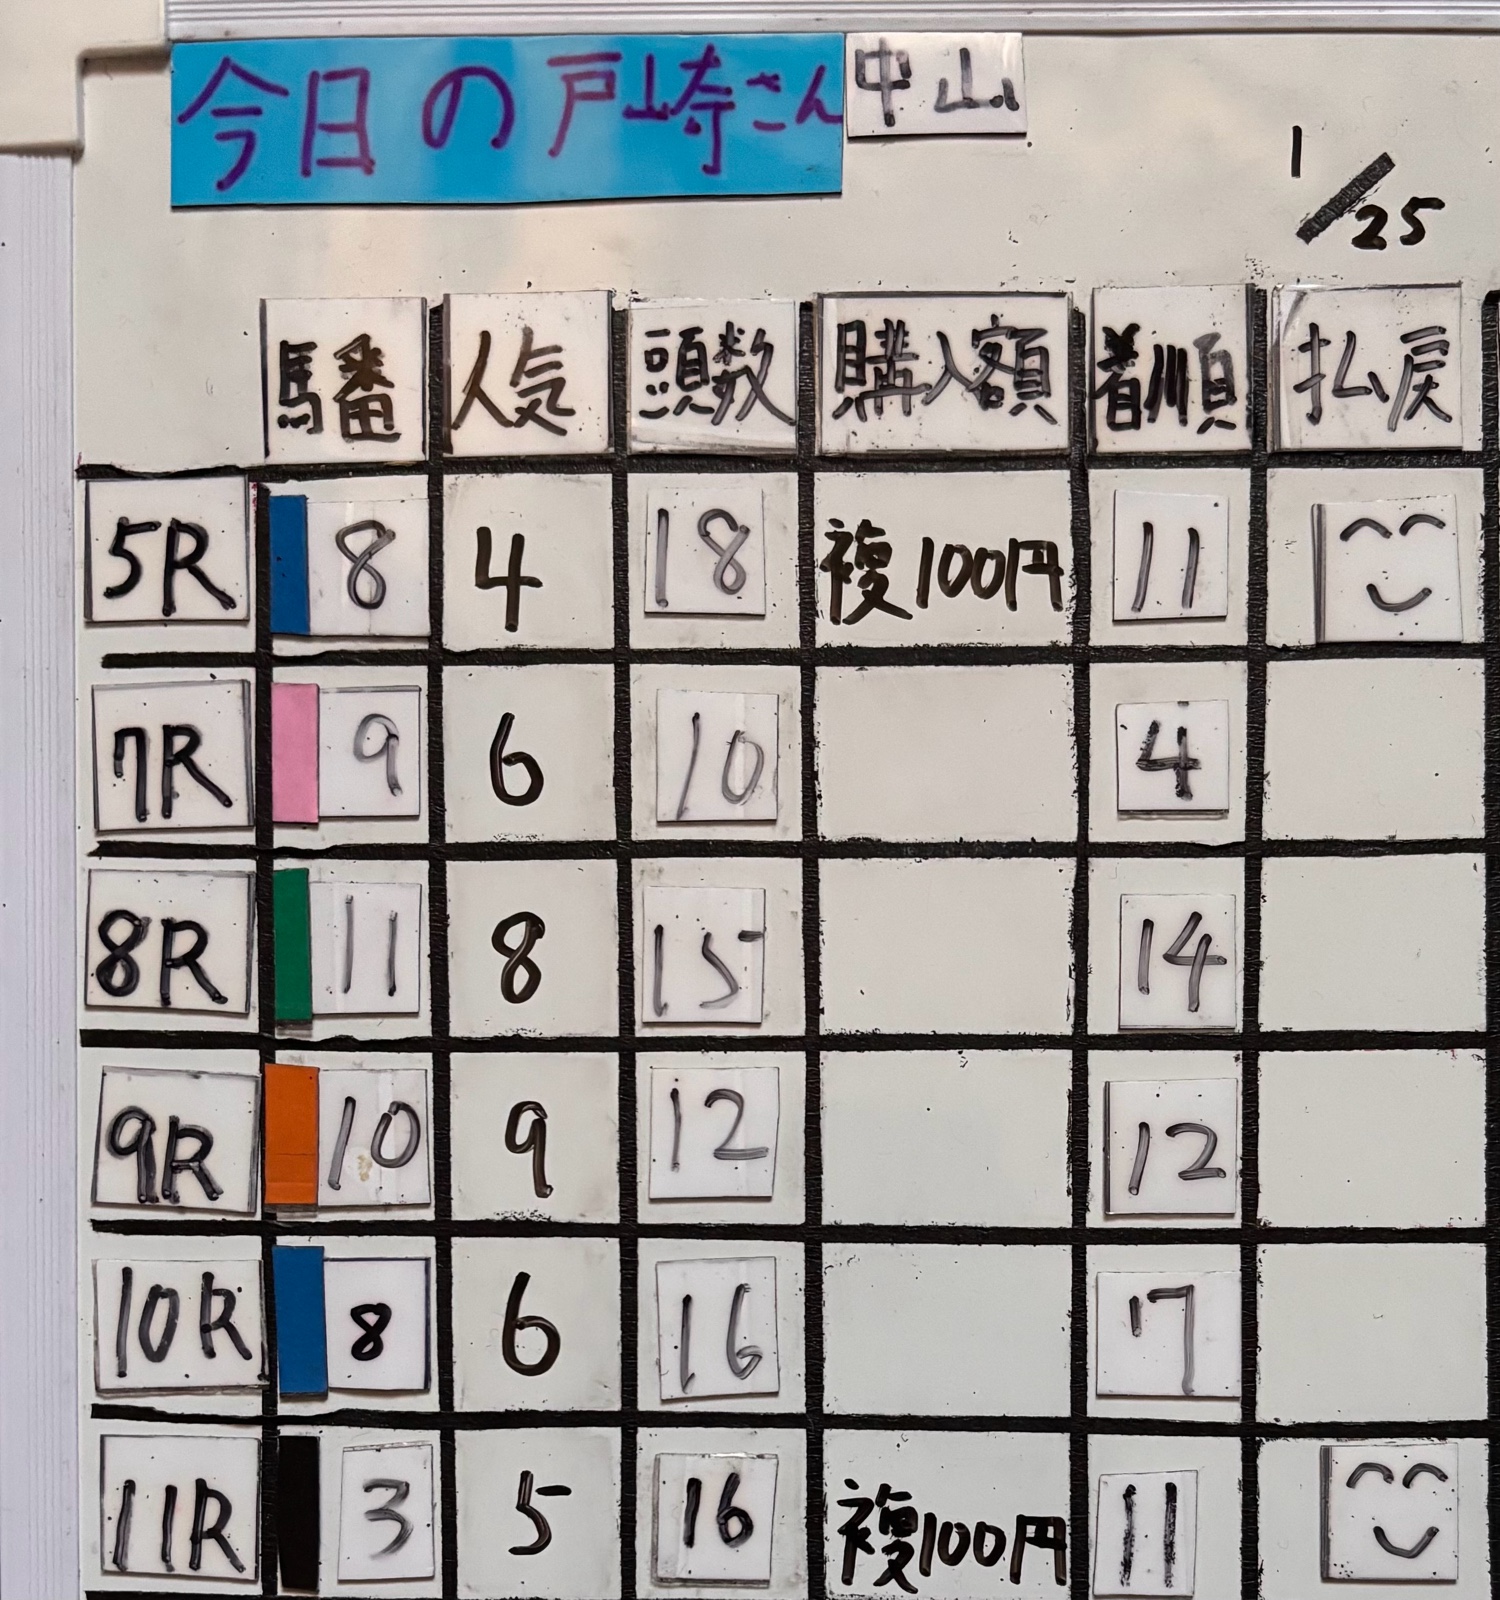 今日の戸崎さん 中山
1/25
馬番 人気 頭数 購入額 着順 払戻
5R 8 4 18 複100円 11
7R 9 6 10 4
8R 11 8 15 14
9R 10 9 12 12
10R 8 6 16 7
11R 3 5 16 複100円 11